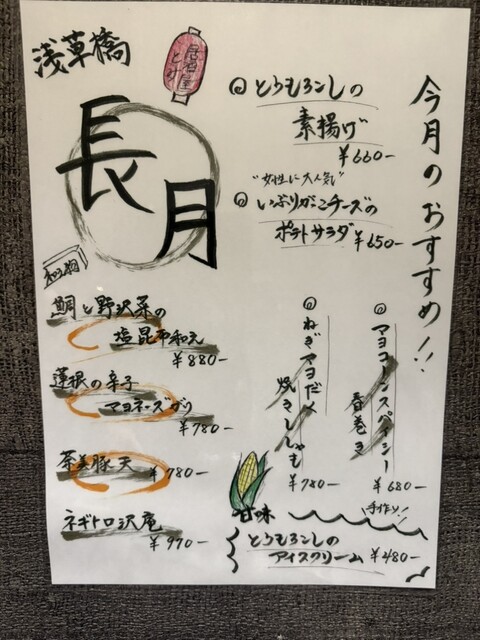 今月のおすすめ!!
浅草橋
居酒屋
とみ
長月
とうもろこしの
素揚げ
¥660-
"女性に大人気"
いぶりがっこチーズの
ポテトサラダ ¥650-
マヨコーンスパイシー
春巻き
¥680-
ねぎマヨだれ
焼きししゃも
¥780-
鯛と野沢菜の
塩昆布和え
¥880-
蓮根の辛子
マヨネーズがり
¥780-
茶美豚天 ¥780-
ネギトロ沢庵
¥970-
甘味
手作り!
とうもろこしの
アイスクリーム ¥480-